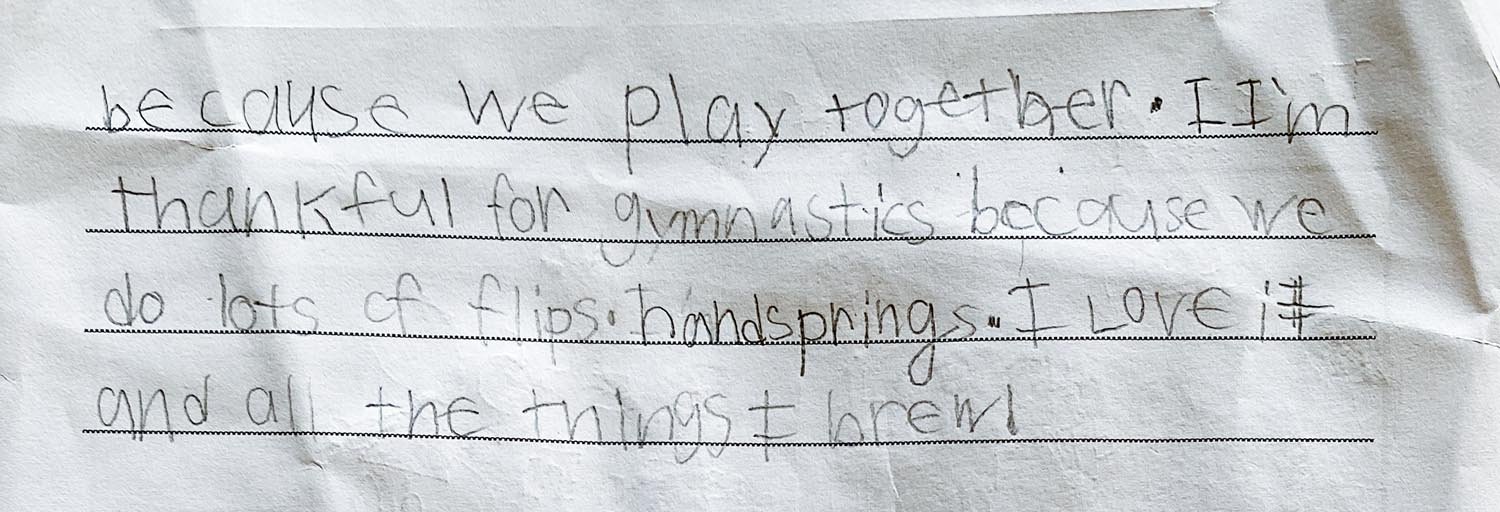 because we play together. I I'm
thankful for gymnastics because we
do lots of flips. handsprings. I LOVE it
and all the things I